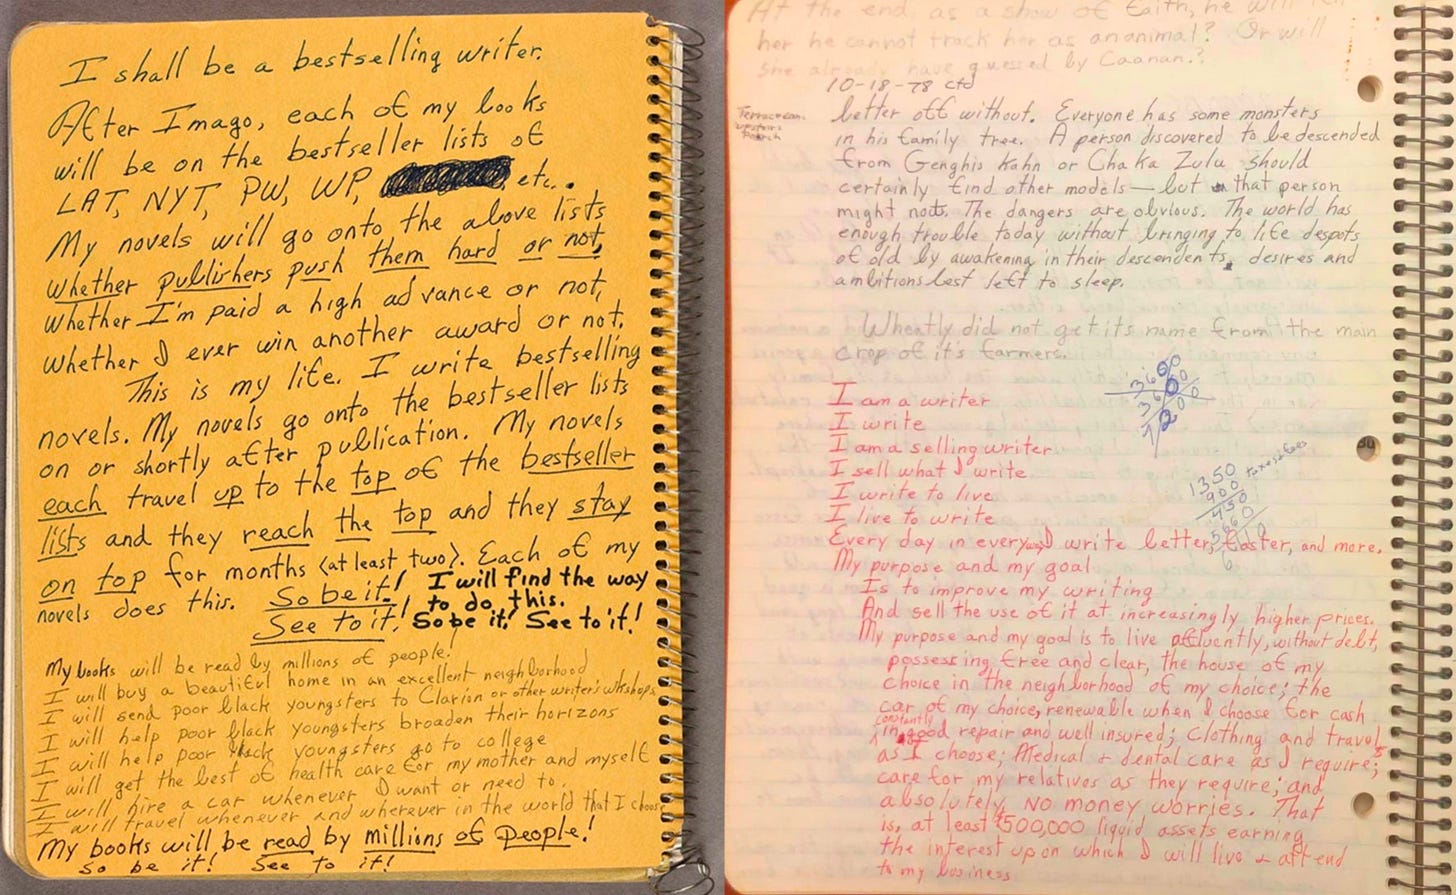 I shall be a bestselling writer.
After Imago, each of my books
will be on the bestseller lists of
LAT, NYT, PW, WP, etc..
My novels will go onto the above lists
whether publishers push them hard or not,
whether I'm paid a high advance or not,
whether I ever win another award or not.
This is my life. I write bestselling
novels. My novels go onto the bestseller lists
on or shortly after publication. My novels
each travel up to the top of the bestseller
lists and they reach the top and they stay
on top for months (at least two). Each of my
novels does this. So be it! I will find the way
See to it! to do this.
So be it! See to it!
My books will be read by millions of people!
I will buy a beautiful home in an excellent neighborhood
I will send poor black youngsters to Clarion or other writer's wkshops
I will help poor black youngsters broaden their horizons
I will help poor black youngsters go to college
I will get the best of health care for my mother and myself
I will hire a car whenever I want or need to.
I will travel whenever and wherever in the world that I choose
My books will be read by millions of people!
So be it! See to it!
At the end, as a show of faith, he will
her he cannot track her as an animal? Or will
she already have guessed by Caanan.?
10-18-78 ctd
better off without. Everyone has some monsters
in his family tree. A person discovered to be descended
from Genghis Kahn or Chaka Zulu should
certainly find other models — but that person
might not. The dangers are obvious. The world has
enough trouble today without bringing to life despots
of old by awakening in their descendents, desires and
ambitions best left to sleep.
Wheatly did not get its name from the main
crop of it's farmers.
3600
3600
7200
I am a writer
I write
I am a selling writer
I sell what I write
I write to live
I live to write
Every day in every way I write better, faster, and more.
My purpose and my goal
Is to improve my writing
And sell the use of it at increasingly higher prices.
My purpose and my goal is to live affluently, without debt,
possessing free and clear, the house of my
choice in the neighborhood of my choice; the
car of my choice, renewable when I choose for cash
constantly
in good repair and well insured; clothing and travel
as I choose; Medical & dental care as I require;
care for my relatives as they require; and
absolutely, NO money worries. That
is, at least $500,000 liquid assets earning
the interest upon which I will live & attend
to my business
1350
900
450